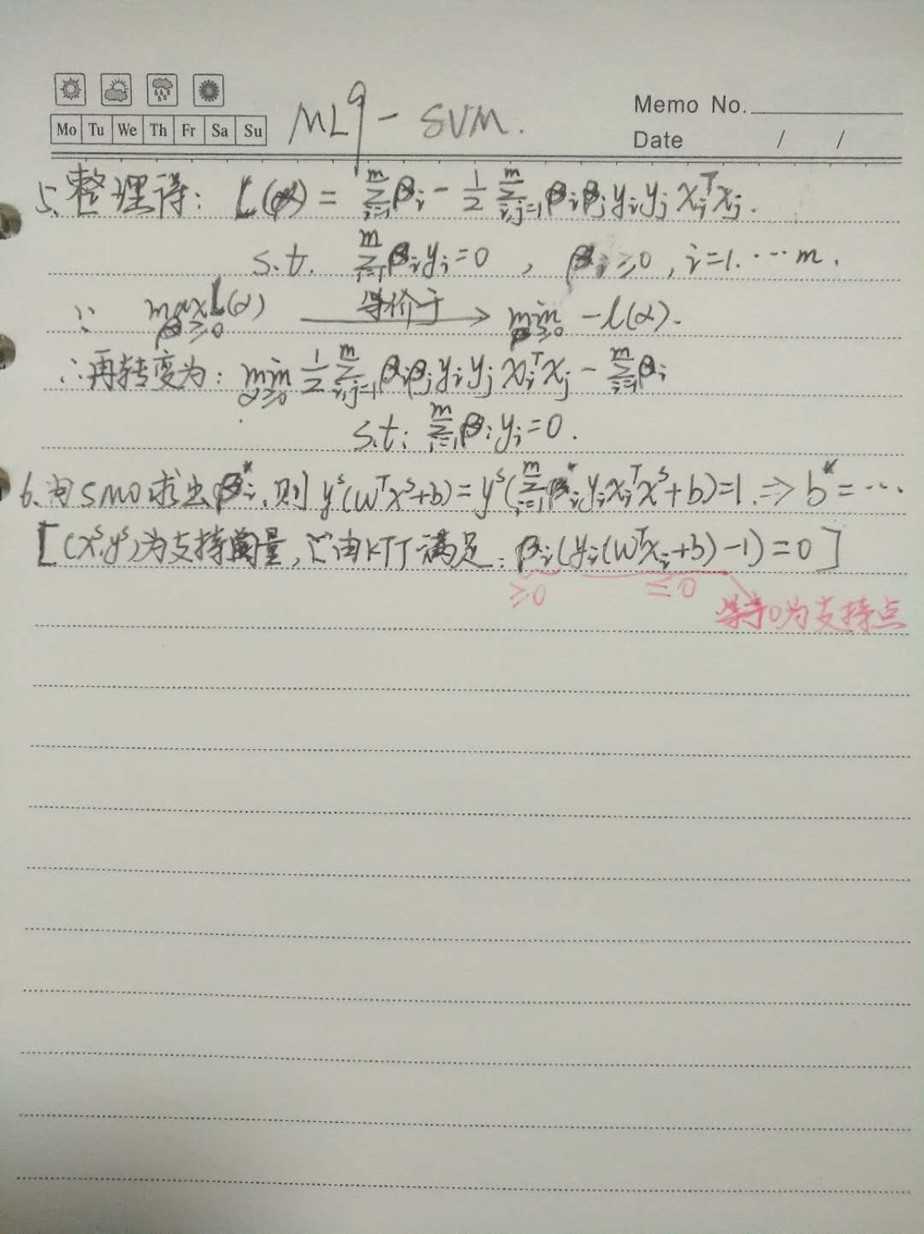 Mo Tu We Th Fr Sa Su
ML9 - SVM.
Memo No.
Date / /
5、整理得: L(β) = Σ_{i=1}^{m} β_i - 1/2 Σ_{i,j=1}^{m} β_i β_j y_i y_j x_i^T x_j.
s.t. Σ_{i=1}^{m} β_i y_i = 0 , β_i ≥ 0 , i=1. … m.
∵ max_{β≥0} L(α) 等价于→ min_{β≥0} -L(α).
∴再转变为: min_{α≥0} 1/2 Σ_{i,j=1}^{m} β_i β_j y_i y_j x_i^T x_j - Σ_{i=1}^{m} β_i
s.t: Σ_{i=1}^{m} β_i y_i = 0.
6、由SMO求出β_i^*, 则 y^s(w^T x^s+b) = y^s(Σ_{i=1}^{m} β_i^* y_i x_i^T x^s + b) = 1. ⇒ b^* = …
[(x^s, y^s)为支持向量, 由KTT满足: β_i(y_i(w^T x_i+b) - 1) = 0]
≥0 ≤0 等于0为支持点